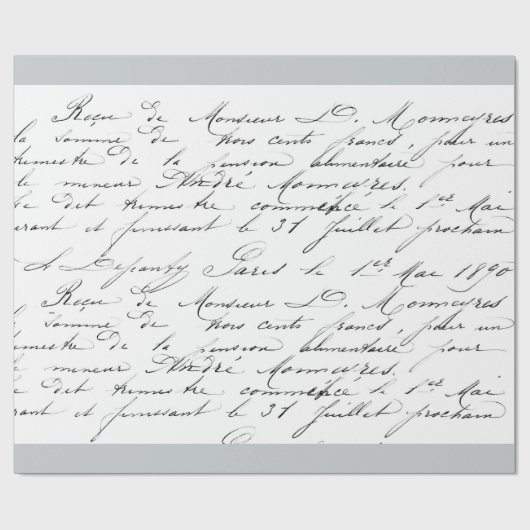 Reçu de Monsieur D. Monneyres
la somme de trois cents francs, pour un
trimestre de la pension alimentaire pour
le mineur André Monneyres.
Le dit trimestre commence le 1er Mai
courant et finissant le 31 Juillet prochain
Paris le 1er Mai 1890
Reçu de Monsieur D. Monneyres
la somme de trois cents francs, pour un
trimestre de la pension alimentaire pour
le mineur André Monneyres.
dit trimestre commence le 1er Mai
courant et finissant le 31 Juillet prochain